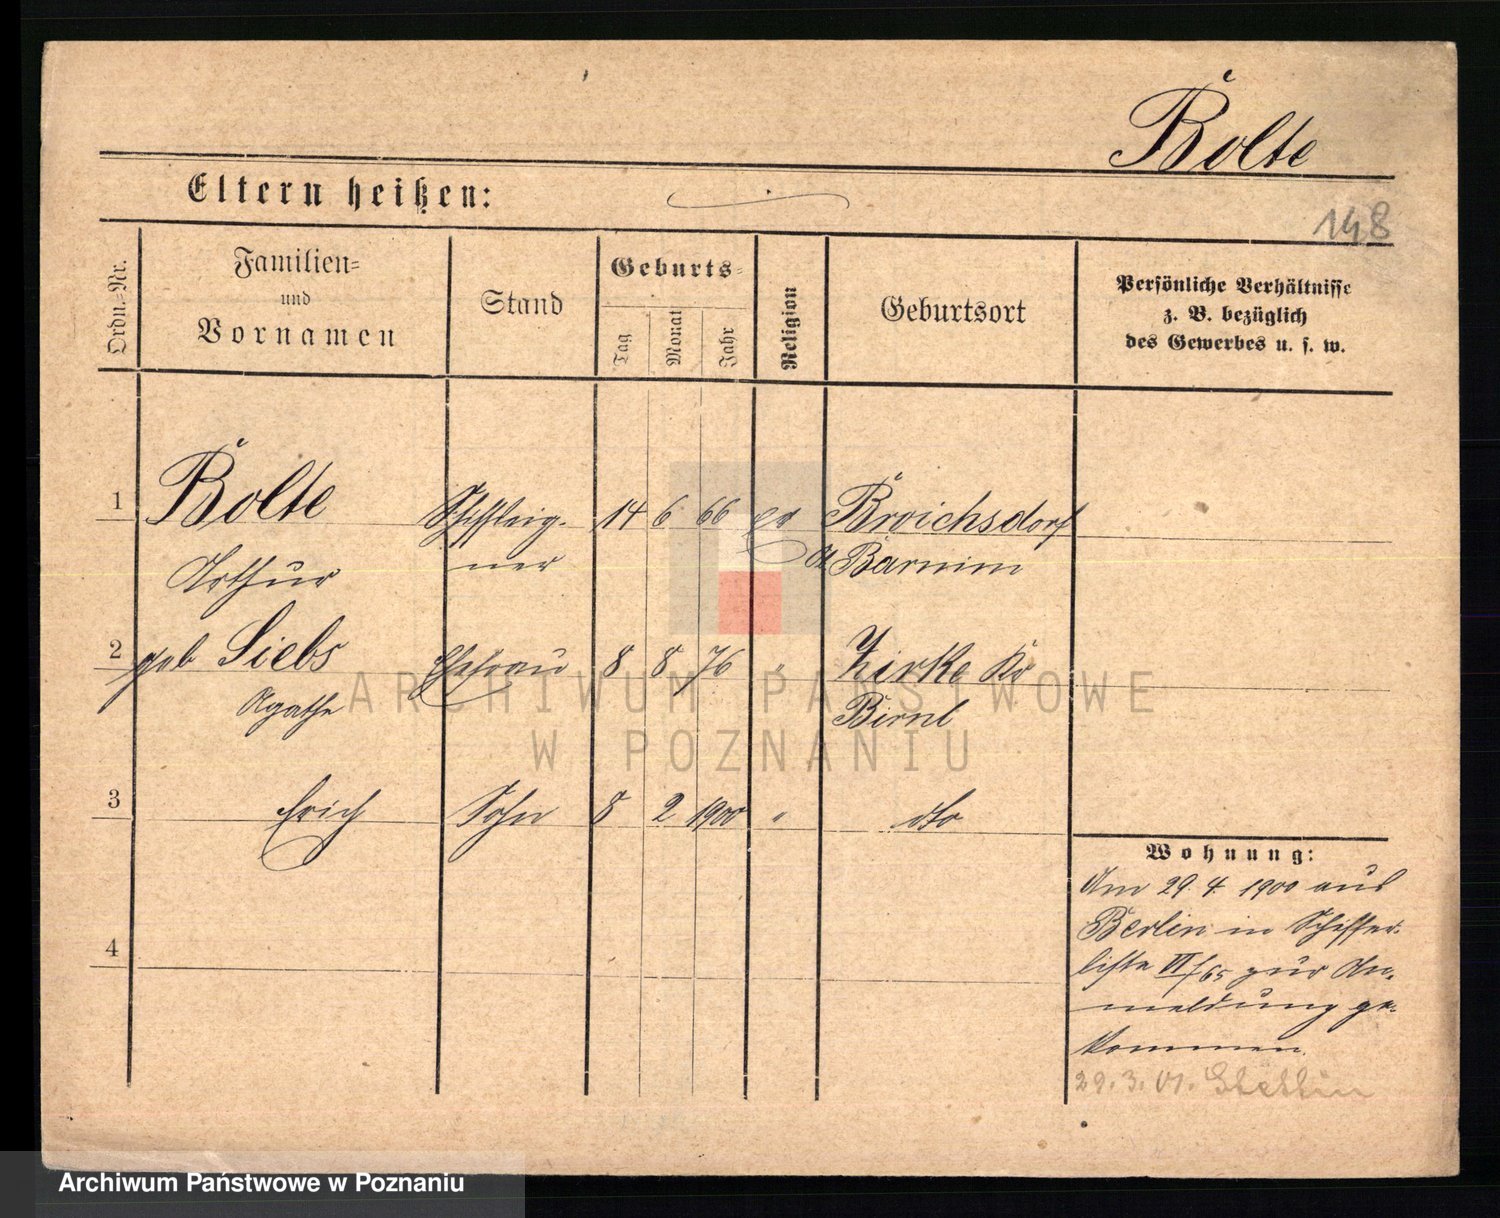 Bolte
Eltern heißen:
148
Ordn.=Nr.
Familien=
und
Vornamen
Stand
Geburts=
Tag
Monat
Jahr
Religion
Geburtsort
Persönliche Verhältnisse
z. B. bezüglich
des Gewerbes u. s. w.
1 Bolte Schiffseig- 14 6 66 ev Broichsdorf
Arthur ner Barnim
2 geb Siebs Ehefrau 8 8 76 " Zirke Kr
Agathe Birnb
3 Erich Sohn 8 2 1900 " dto
4
Wohnung:
Am 29. 4. 1900 aus
Berlin in Schiffer-
liste VI/65 zur An-
meldung ge-
kommen.
29. 3. 01. Stettin
ARCHIWUM PAŃSTWOWE
W POZNANIU
Archiwum Państwowe w Poznaniu